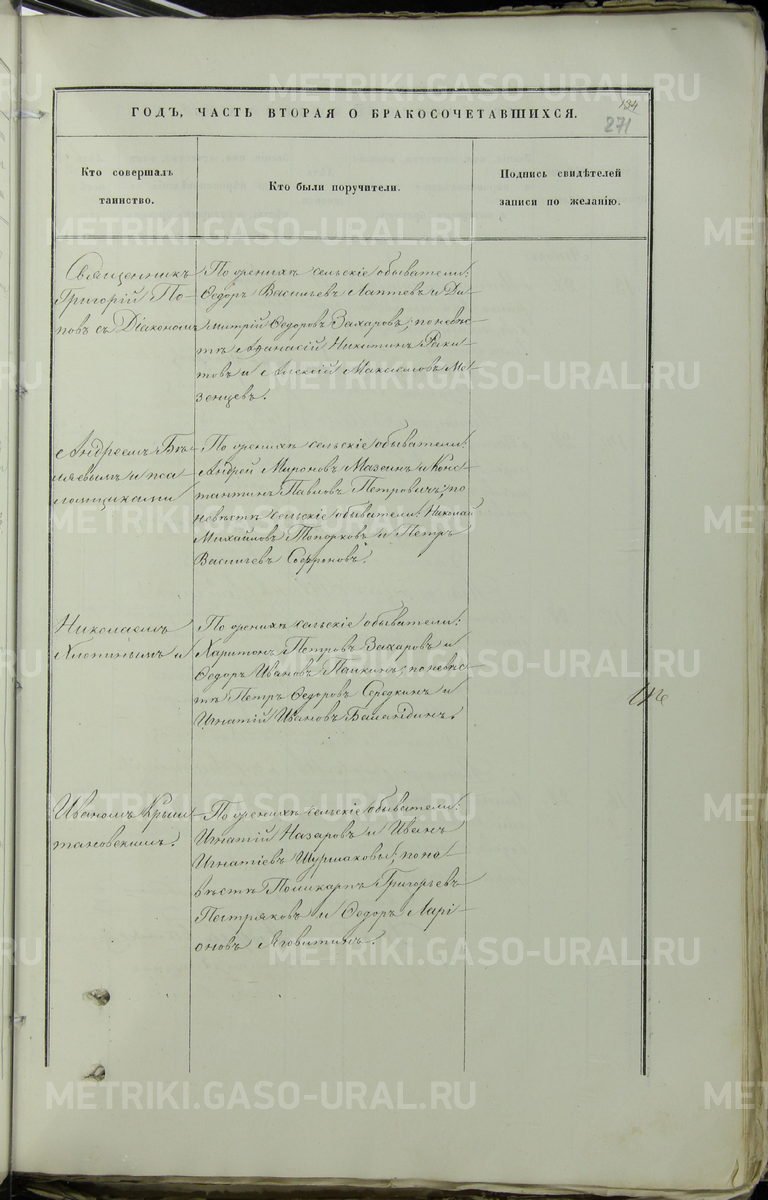 134
271
ГОДЪ, ЧАСТЬ ВТОРАЯ О БРАКОСОЧЕТАВШИХСЯ.
Кто совершалъ
таинство.
Кто были поручители.
Подпись свидѣтелей
записи по желанію.
Священникъ
Григорій По-
повъ съ Діакономъ
По женихѣ сельскіе обыватели:
Ѳедоръ Васильевъ Лаптевъ и Ди-
митрій Ѳедоровъ Захаровъ; по невѣс-
тѣ Аѳанасій Никитинъ Раки-
товъ и Алексій Максимовъ Ме-
зенцевъ.
Андреемъ Бѣ-
ляевымъ и пса-
ломщиками
По женихѣ сельскіе обыватели:
Андрей Мироновъ Мазеинъ и Конс-
тантинъ Павловъ Петровичъ; по
невѣстѣ сельскіе обыватели: Николай
Михайловъ Топорковъ и Петръ
Васильевъ Софроновъ.
Николаемъ
и
По женихѣ сельскіе обыватели:
Харитонъ Петровъ Захаровъ и
Ѳедоръ Ивановъ Папкинъ; по невѣс-
тѣ Петръ Ѳедоровъ Середкинъ и
Игнатій Ивановъ Баландинъ.
Иваномъ Крыш-
тановскимъ.
По женихѣ сельскіе обыватели:
Игнатій Назаровъ и Иванъ
Игнатіевъ Шуршаковы; по не-
вѣстѣ Поликарпъ Григорьевъ
Пестряковъ и Ѳедоръ Ларі-
оновъ Яговитинъ.
METRIKI.GASO-URAL.RU